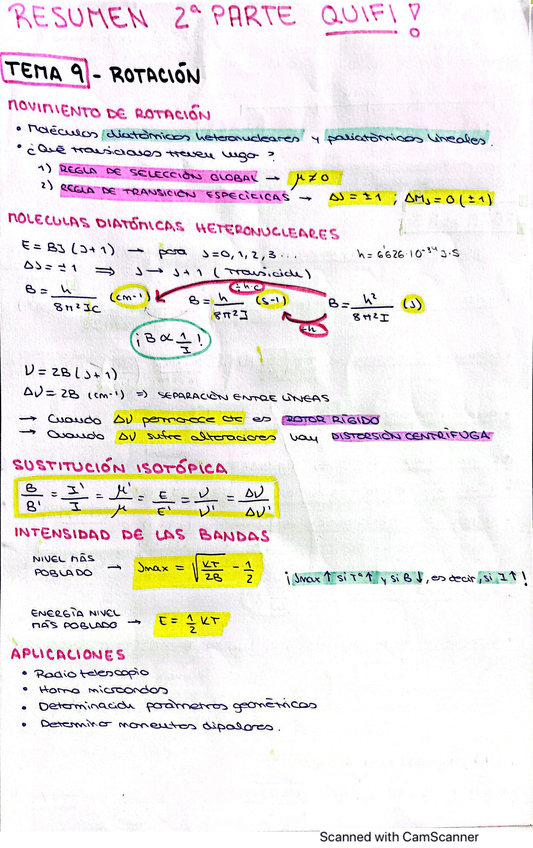 RESUMEN 2ª PARTE QUIFI!
TEMA 9 - ROTACIÓN
MOVIMIENTO DE ROTACIÓN
• Moléculas diatómicas heteronucleares y poliatómicas lineales.
• ¿Qué transiciones tienen lugar?
1) REGLA DE SELECCIÓN GLOBAL → μ≠0
2) REGLA DE TRANSICIÓN ESPECÍFICAS → ΔJ = ±1 ; ΔMJ = 0 (±1)
MOLECULAS DIATÓMICAS HETERONUCLEARES
E = BJ (J+1) → para J=0,1,2,3... h = 6'626·10⁻³⁴ J·S
ΔJ = ±1 ⇒ J → J+1 (Transición)
B = h / 8π²Ic (cm-1) B = h / 8π²I (s-1) B = h² / 8π²I (J)
÷hc
÷h
¡B ∝ 1/I !
ν = 2B (J+1)
Δν = 2B (cm-1) ⇒ SEPARACIÓN ENTRE LÍNEAS
→ Cuando Δν permanece cte es ROTOR RÍGIDO
→ Cuando Δν sufre alteraciones hay DISTORSIÓN CENTRÍFUGA
SUSTITUCIÓN ISOTÓPICA
B/B' = I'/I = μ'/μ = E/E' = ν/ν' = Δν/Δν'
INTENSIDAD DE LAS BANDAS
NIVEL MÁS POBLADO → Jmax = √(KT/2B) - 1/2 ¡Jmax ↑ si Tª↑ y si B↓, es decir, si I↑!
ENERGÍA NIVEL MÁS POBLADO → E = 1/2 KT
APLICACIONES
• Radio telescopio
• Horno microondas
• Determinación parámetros geométricos
• Determinar momentos dipolares.
Scanned with CamScanner